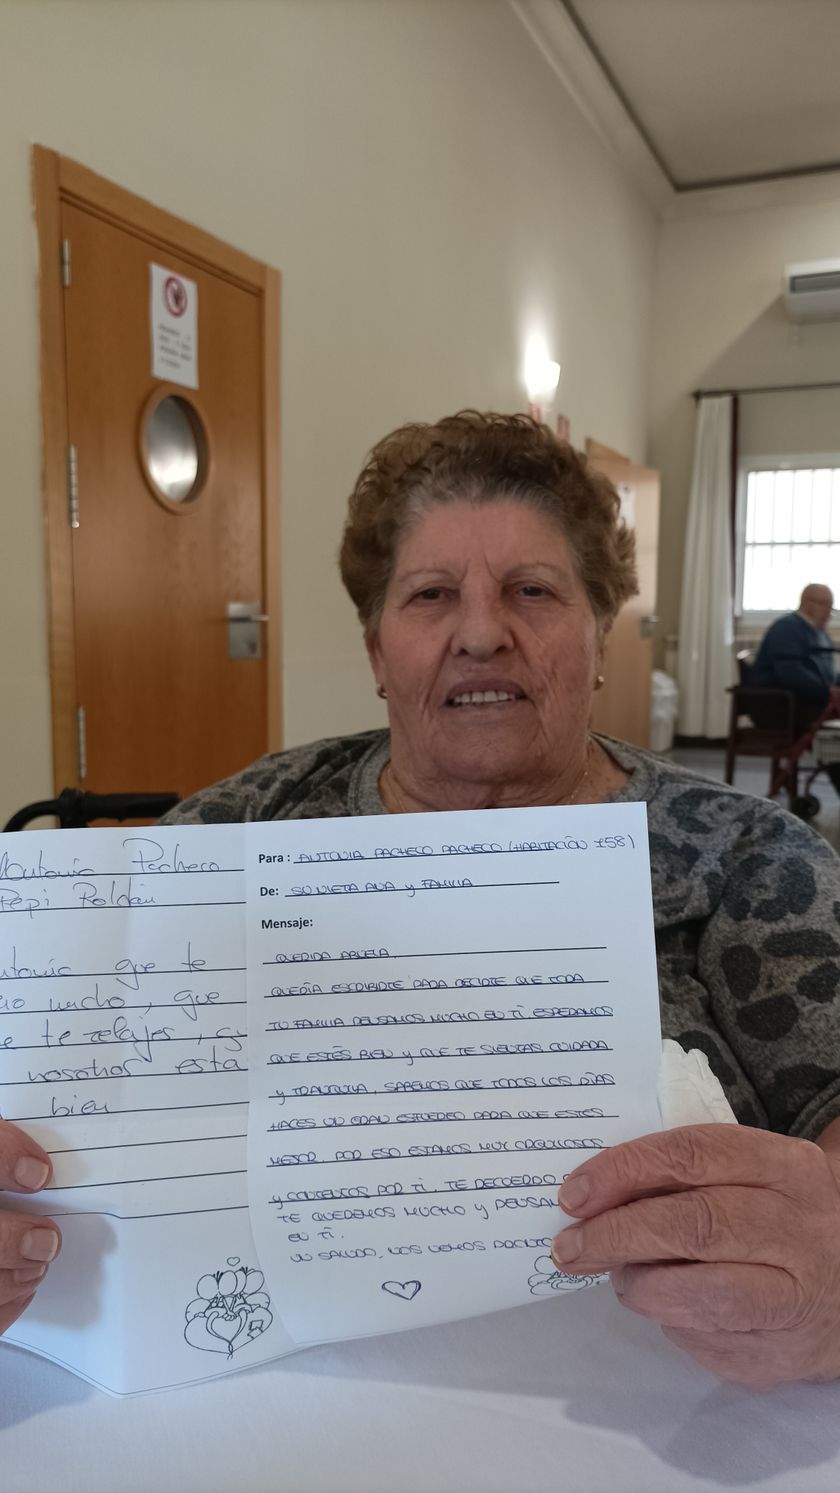 Antonia Pacheco
Pepi Roldán
que te
mucho, que
te relajes,
nosotros está
bien
Para : ANTONIA PACHECO PACHECO (HABITACIÓN 158)
De: SU NIETA ANA y FAMILIA
Mensaje:
QUERIDA ABUELA,
QUERÍA ESCRIBIRTE PARA DECIRTE QUE TODA
TU FAMILIA PENSAMOS MUCHO EN TI. ESPERAMOS
QUE ESTÉS BIEN y QUE TE SIENTAS CUIDADA
y TRANQUILA. SABEMOS QUE TODOS LOS DÍAS
HACES UN GRAN ESFUERZO PARA QUE ESTÉS
MEJOR. POR ESO ESTAMOS MUY ORGULLOSOS
y CONTENTOS POR TI. TE RECUERDO
TE QUEREMOS MUCHO y PENSAM
EN TI.
UN SALUDO, NOS VEMOS PRONTO